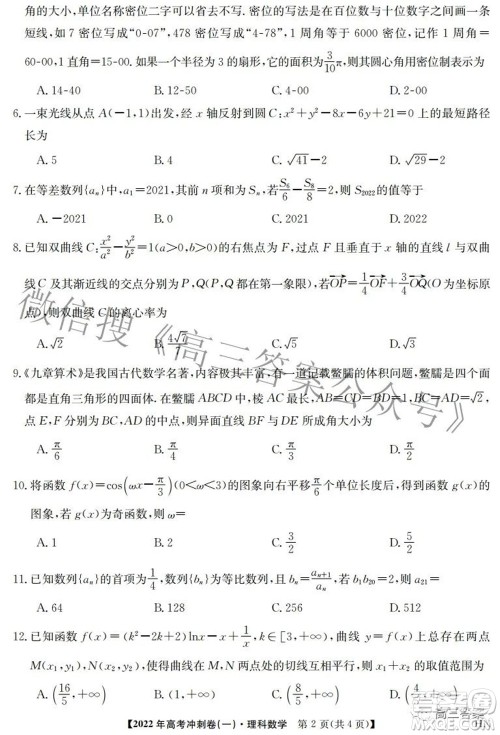 角的大小,单位名称密位二字可以省去不写.密位的写法是在百位数与十位数字之间画一条
短线,如7密位写成“0-07”,478密位写成“4-78”,1周角等于6000密位,记作1周角=
60-00,1直角=15-00.如果一个半径为3的扇形,它的面积为3/10π,则其圆心角用密位制表示为
A. 14-40 B. 6-40 C. 4-00 D. 2-00
6. 一束光线从点A(-1,1)出发,经x轴反射到圆C:x²+y²-8x-6y+21=0上的最短路径
长为
A. 5 B. 4 C. √41-2 D. √29-2
7. 在等差数列{aₙ}中,a₁=2021,其前n项和为Sₙ,若S₆/6-S₈/8=2,则S₂₀₂₂的值等于
A. -2021 B. 0 C. 2021 D. 2022
8. 已知双曲线C:x²/a²-y²/b²=1(a>0,b>0)的右焦点为F,过点F且垂直于x轴的直线l与双曲
线C及其渐近线的交点分别为P,Q(P,Q都在第一象限),若OP=1/4OF+3/4OQ(O为坐标原
点),则双曲线C的离心率为
A. √2 B. 4√7/7 C. √3 D. √5
9. 《九章算术》是我国古代数学名著,内容极其丰富,有一道记载鳖臑的体积问题,鳖臑是四个面
都是直角三角形的四面体.在鳖臑ABCD中,棱AC,BD为直角边,AB=CD=BD=1,
点E,F分别为BC,AD的中点,则异面直线BF与DE所成角大小为
A. π/6 B. π/4 C. π/3 D. π/2
10. 将函数f(x)=cos(ωx-π/3)(0<ω<3)的图象向右平移π/6个单位长度后,得到函数g(x)的
图象,若g(x)为奇函数,则ω=
A. 1 B. 2 C. 3/2 D. 5/2
11. 已知数列{aₙ}的首项为1/4,{bₙ}为等比数列,且bₙ=aₙ₊₁/aₙ,若b₁b₂₀=2,则a₂₁=
A. 64 B. 128 C. 256 D. 512
12. 已知函数f(x)=(k²-2k+2)lnx-x+1/x,k∈[3,+∞),曲线y=f(x)上总存在两点
M(x₁,y₁),N(x₂,y₂),使得曲线y=f(x)在M,N两点处的切线互相平行,则x₁+x₂的取值
范围为
A. (16/5,+∞) B. [16/5,+∞) C. (8/5,+∞) D. [8/5,+∞)
【2022年高考冲刺卷(一)·理科数学 第2页(共4页)】
微信搜《高三答案公众号》
高三答案